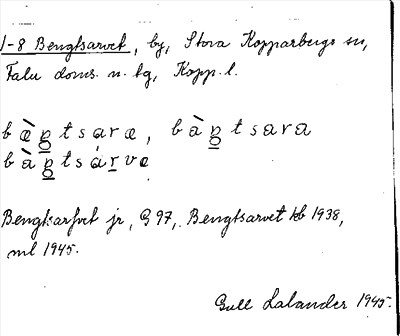 1-8 Bengtsarvet, by, Stora Kopparbergs sn,
Falu doms. n. tg, Kopp. l.
b æ̀ n̲ t s a r æ, b à n̲ t s a r a
b à n̲ t s á r̲ v e
Bengtsarfvet jr, G 97, Bengtsarvet kb 1938,
ml 1945.
Gull Lalander 1945.